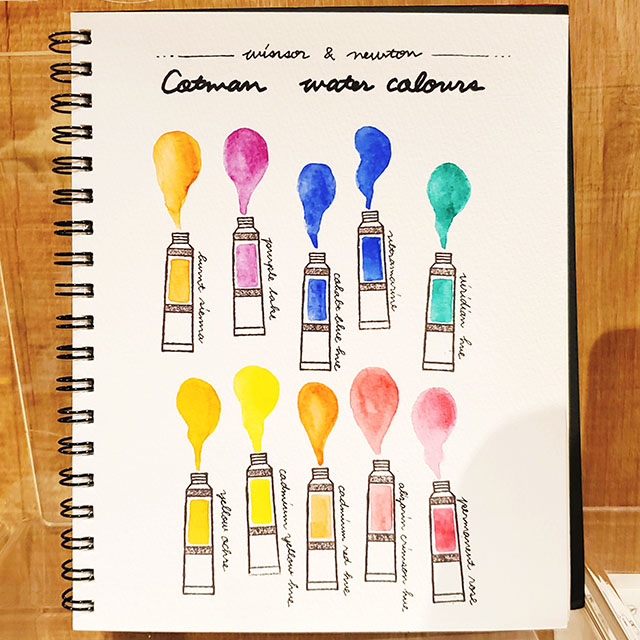 winsor & newton
Cotman water colours
burnt sienna
purple lake
cobalt blue hue
ultramarine
viridian hue
yellow ochre
cadmium yellow hue
cadmium red hue
alizarin crimson hue
permanent rose